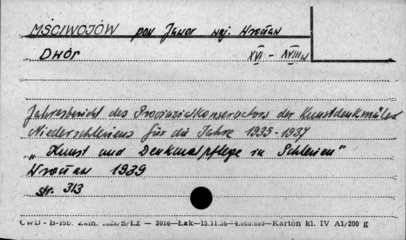 MŚCIWOJÓW pow Jawor woj. Wrocław
Dwór XVI - XVIII w
Jahresbericht des Provinzialkonservators der Kunstdenkmäler
Niederschlesiens für die Jahre 1935-1937
„Kunst und Denkmalpflege in Schlesien"
Wrocław 1939
str. 313
CWD - B-150. Zam. S/ŁZ — 3016—Łak—15.11.56—4.000.000—Karton kl. IV A1/200 g